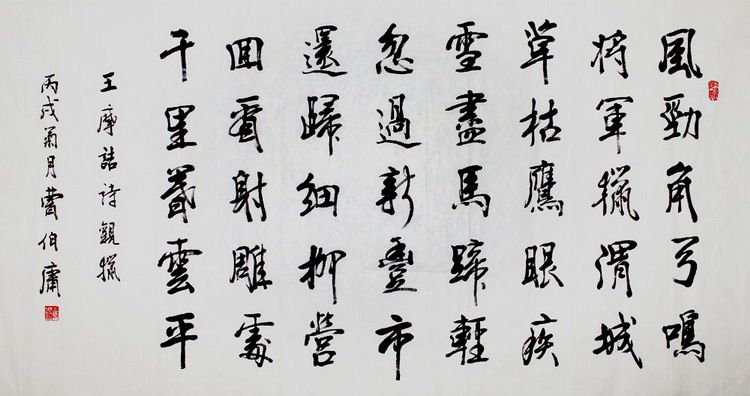 風勁角弓鳴
将軍獵渭城
草枯鷹眼疾
雪盡馬蹄輕
忽過新豐市
還歸細柳營
回看射雕處
千里暮雲平
王摩詰詩觀獵
丙戌菊月費伯庸